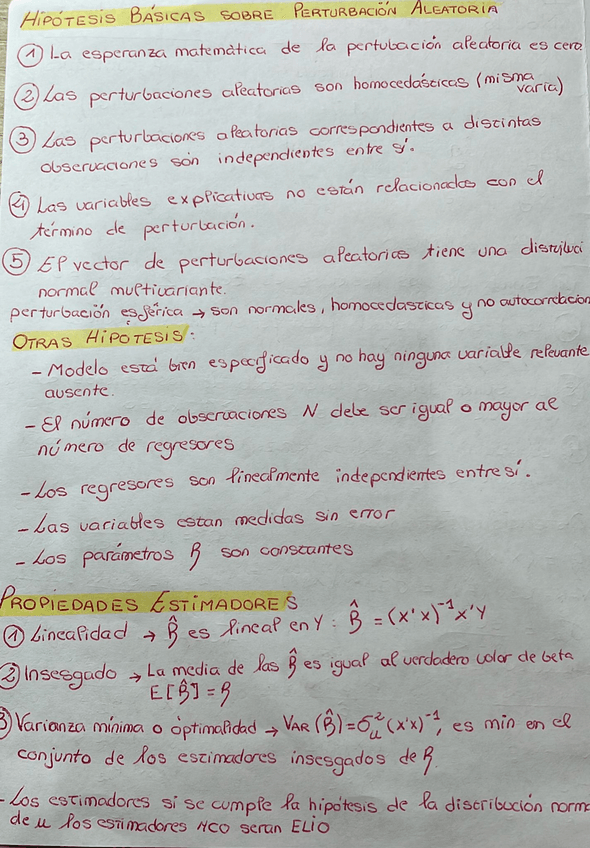 HIPÓTESIS BÁSICAS SOBRE PERTURBACIÓN ALEATORIA
① La esperanza matemática de la pertubación aleatoria es cero
② Las perturbaciones aleatorias son homocedásticas (misma
varia)
③ Las perturbaciones aleatorias correspondientes a distintas
observaciones són independientes entre sí.
④ Las variables explicativas no están relacionadas con el
término de perturbación.
⑤ El vector de perturbaciones aleatorias tiene una distribuci
normal multivariante.
perturbación esférica → son normales, homocedasticas y no autocorrelacion
OTRAS HIPÓTESIS:
- Modelo está bien especificado y no hay ninguna variable relevante
ausente.
- El número de observaciones N debe ser igual o mayor al
número de regresores
- Los regresores son linealmente independientes entre sí.
- Las variables estan medidas sin error
- Los parámetros β son constantes
PROPIEDADES ESTIMADORES
① Linealidad → β̂ es lineal en Y: β̂ = (x'x)⁻¹x'Y
② Insesgado → La media de las β̂ es igual al verdadero valor de beta
E[β̂] = β
③ Varianza mínima o optimalidad → VAR(β̂) = σ²ᵤ(x'x)⁻¹, es min en el
conjunto de los estimadores insesgados de β.
- Los estimadores si se cumple la hipótesis de la distribución norm
de u los estimadores MCO seran ELIO